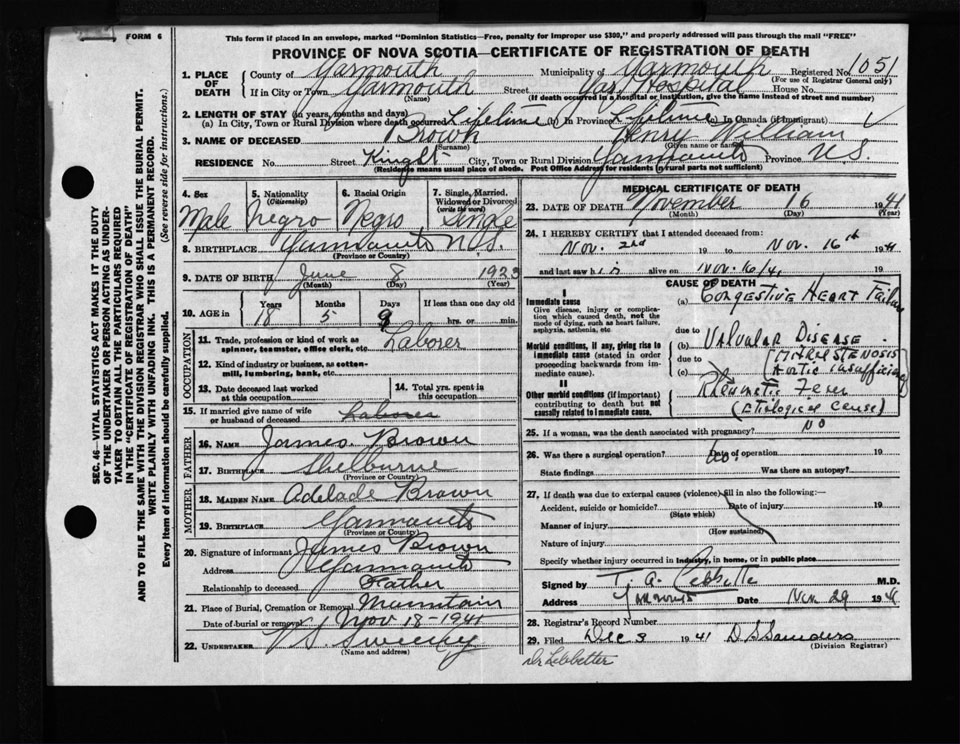 FORM 6
This form if placed in an envelope, marked "Dominion Statistics—Free, penalty for improper use $300," and properly addressed will pass through the mail "FREE"
PROVINCE OF NOVA SCOTIA—CERTIFICATE OF REGISTRATION OF DEATH
1. PLACE OF DEATH County of Yarmouth Municipality of Yarmouth Registered No. 1051
(For use of Registrar General only)
If in City or Town Yarmouth Street Yar. Hospital House No.
(Name) (If death occurred in a hospital or institution, give the name instead of street and number)
2. LENGTH OF STAY (in years, months and days)
(a) In City, Town or Rural Division where death occurred Lifetime (b) In Province Lifetime (c) In Canada (if immigrant)
3. NAME OF DECEASED Brown Henry William
(Surname) (Given name or names)
RESIDENCE No. Street City, Town or Rural Division Yarmouth Province N.S.
(Residence means usual place of abode. Post Office Address for residents in rural parts not sufficient)
4. Sex 5. Nationality (Citizenship) 6. Racial Origin 7. Single, Married, Widowed or Divorced (write the word)
Male Negro Negro Single
8. BIRTHPLACE Yarmouth N.S.
(Province or Country)
9. DATE OF BIRTH June 8 1923
(Month) (Day) (Year)
10. AGE in Years Months Days If less than one day old
18 5 hrs. or min.
OCCUPATION
11. Trade, profession or kind of work as spinner, teamster, office clerk, etc. Laborer
12. Kind of industry or business, as cotton-mill, lumbering, bank, etc.
13. Date deceased last worked at this occupation 14. Total yrs. spent in this occupation
15. If married give name of wife or husband of deceased Laborer
FATHER
16. NAME James Brown
17. BIRTHPLACE Shelburne
(Province or Country)
MOTHER
18. MAIDEN NAME Adelade Brown
19. BIRTHPLACE Yarmouth
(Province or Country)
20. Signature of informant James Brown
Address Yarmouth
Relationship to deceased Father
21. Place of Burial, Cremation or Removal Mountain
Date of burial or removal Nov 18-1941
22. UNDERTAKER V S Sweeny
(Name and address)
MEDICAL CERTIFICATE OF DEATH
23. DATE OF DEATH November 16 1941
(Month) (Day) (Year)
24. I HEREBY CERTIFY that I attended deceased from:
Nov. 2nd 19 to Nov. 16th 1941
and last saw him alive on Nov. 16/41 19
CAUSE OF DEATH
I
Immediate cause (a) Congestive Heart Failure
Give disease, injury or complication which caused death, not the mode of dying, such as heart failure, asphyxia, asthenia, etc.
due to
Morbid conditions, if any, giving rise to immediate cause (stated in order proceeding backwards from immediate cause). (b) Valvular Disease.
due to (Mitral Stenosis
(c) Aortic insufficiency)
II
Other morbid conditions (if important) contributing to death but not causally related to immediate cause. Rheumatic Fever
(Etiological cause)
25. If a woman, was the death associated with pregnancy? NO
26. Was there a surgical operation? No Date of operation 19
State findings Was there an autopsy?
27. If death was due to external causes (violence) fill in also the following:—
Accident, suicide or homicide? Date of injury 19
(State which)
Manner of injury
(How sustained)
Nature of injury
Specify whether injury occurred in Industry, in home, or in public place
Signed by T. A. Lebbetter M.D.
Address Yarmouth Date Nov 29 1941
28. Registrar's Record Number
29. Filed Dec 8 1941 D. S. Saunders
(Division Registrar)
Dr Lebbetter
SEC. 46—VITAL STATISTICS ACT MAKES IT THE DUTY
OF THE UNDERTAKER OR PERSON ACTING AS UNDER-
TAKER TO OBTAIN ALL THE PARTICULARS REQUIRED
IN THE "CERTIFICATE OF REGISTRATION OF DEATH"
AND TO FILE THE SAME WITH THE DIVISION REGISTRAR WHO SHALL ISSUE THE BURIAL PERMIT.
WRITE PLAINLY WITH UNFADING INK. THIS IS A PERMANENT RECORD.
Every item of information should be carefully supplied. (See reverse side for instructions.)